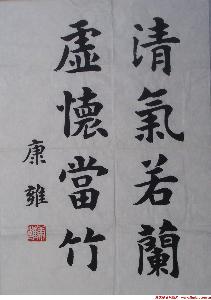 清氣若蘭
虛懷當竹
康雍